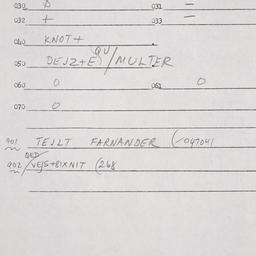 030 A 031 —
032 + 033 —
040 KNOT+
QU
050 DEJZ+E / MULTER
060 0 061 0
070 0
901 TEJLT FARNANDER (-047041
QED
902 /VEJS+BIXNIT (268